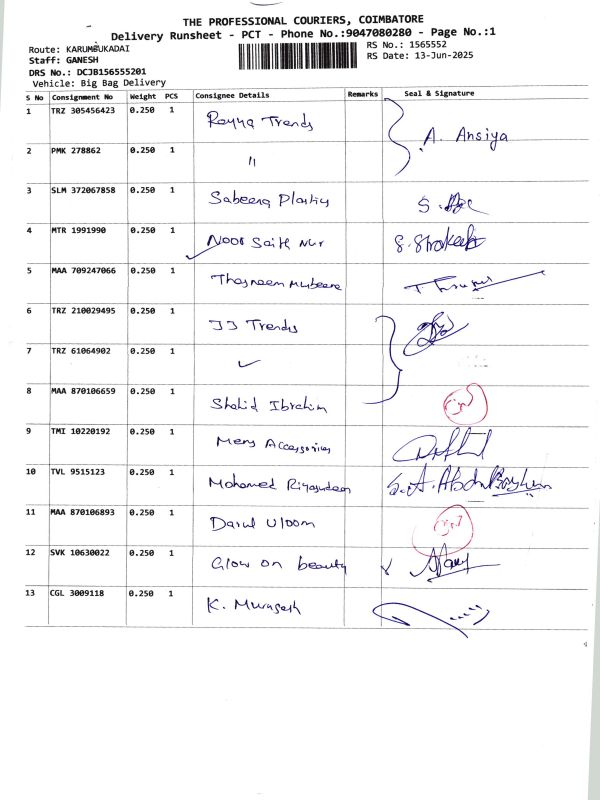 THE PROFESSIONAL COURIERS, COIMBATORE
Delivery Runsheet - PCT - Phone No.:9047080280 - Page No.:1
Route: KARUMBUKADAI
RS No.: 1565552
Staff: GANESH
RS Date: 13-Jun-2025
DRS No.: DCJB156555201
Vehicle: Big Bag Delivery
S No Consignment No Weight PCS Consignee Details Remarks Seal & Signature
1 TRZ 305456423 0.250 1 Rayya Trends A. Ansiya
2 PMK 278862 0.250 1 "
3 SLM 372067858 0.250 1 Sabeena Plastics S.
4 MTR 1991990 0.250 1 Noor Sait Nur S.
5 MAA 709247066 0.250 1 Thasneem Mubeena
6 TRZ 210029495 0.250 1 JJ Trends
7 TRZ 61064902 0.250 1
8 MAA 870106659 0.250 1 Shahid Ibrahim
9 TMI 10220192 0.250 1 Mens Accessories
10 TVL 9515123 0.250 1 Mohamed Riyasudeen S.A. Abdul
11 MAA 870106893 0.250 1 Darul Uloom
12 SVK 10630022 0.250 1 Glow on beauty
13 CGL 3009118 0.250 1 K. Murugesh